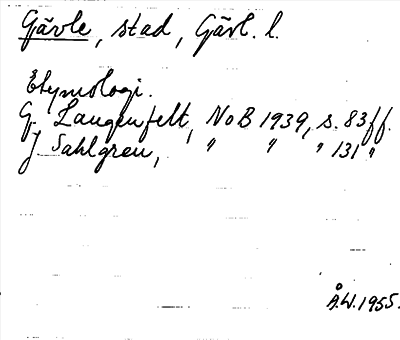 Gävle, stad, Gävl. l.
Etymologi.
G. Langenfelt, NoB 1939, s. 83 ff.
J Sahlgren, " " " 131 "
Å.W. 1955.